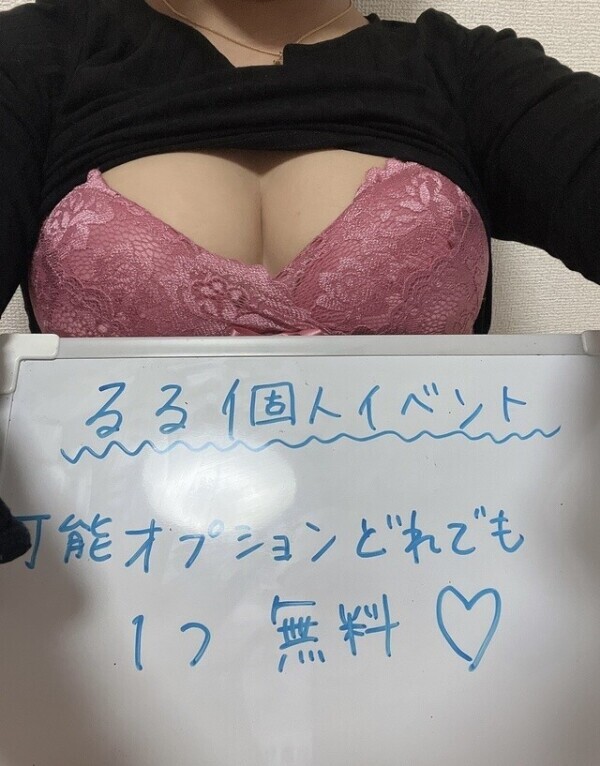 るる個人イベント
可能オプションどれでも
1つ 無料♡